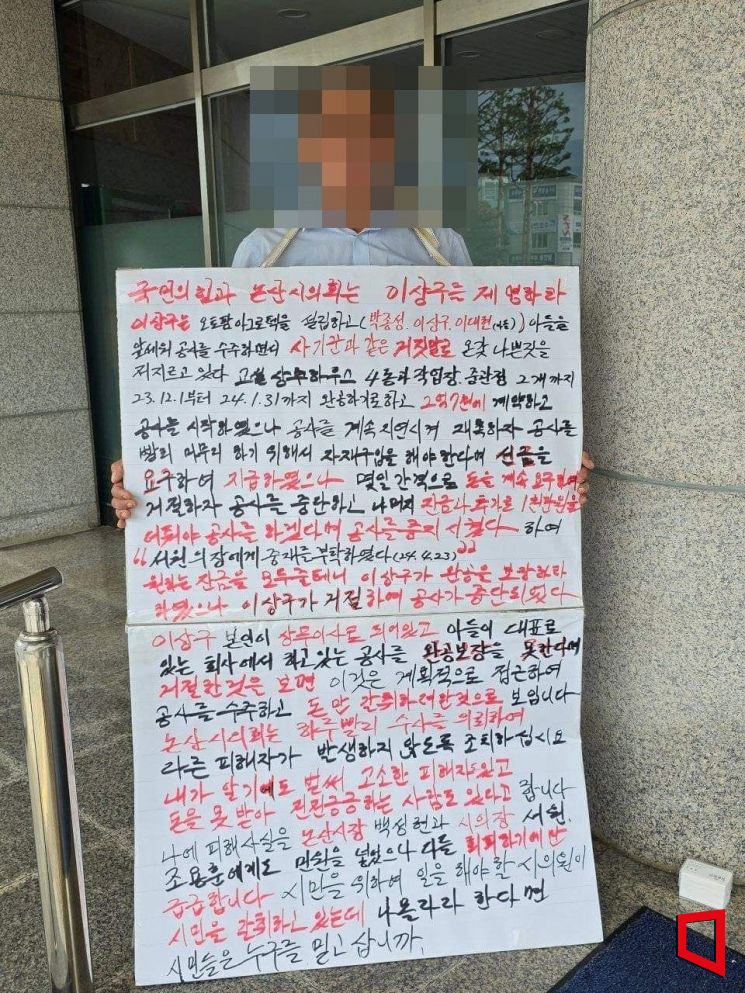 국민의힘과 논산시의회는 이상구를 제명하라
이상구는 오토팜아그로텍을 설립하고(박종성.이상구.이대현(아들))아들을
앞세워 공사를 수주하면서 사기꾼과 같은 거짓말로 온갖 나쁜짓을
저지르고 있다 고설 상부하우스 4동과 작업장.출판점 2개까지
23.12.1부터 24.1.31까지 완공하기로하고 2억7천에 계약하고
공사를 시작하였으나 공사를 계속 지연시켜 재촉하자 공사를
빨리 마무리 하기 위해서 자재구입을 해야한다며 선금을
요구하여 지급하였으나 몇일 간격으로 돈을 계속 요구하여
거절하자 공사를 중단하고 나머지 잔금과 추가로 1천만원을
더줘야 공사를 하겠다며 공사를 중지 시켰다 하여
"서원 의장에게 중재를 부탁하였다(24.4.23)"
원하는 잔금을 모두줄테니 이상구가 완공은 보장하라
하였으나 이상구가 거절하여 공사가 중단되었다
이상구 본인이 상무이사로 되어있고 아들이 대표로
있는 회사에서 하고있는 공사를 완공보장을 못한다며
거절한것을 보면 이것은 계획적으로 접근하여
공사를 수주하고 돈만 갈취하려한것으로 보입니다
논산시의회는 하루빨리 수사를 의뢰하여
다른 피해자가 발생하지 않도록 조치하십시요
내가 알기에도 벌써 고소한 피해자있고
돈을 못 받아 전전긍긍하는 사람도 있다고 합니다
나에 피해사실을 논산시장 백성현과 시의장 서원.
조용훈에게도 민원을 넣었으나 다들 회피하기에만
급급합니다 시민을 위하여 일을 해야할 시의원이
시민을 갈취하고 있는데 나몰라라 한다면
시민들은 누구를 믿고 삽니까.